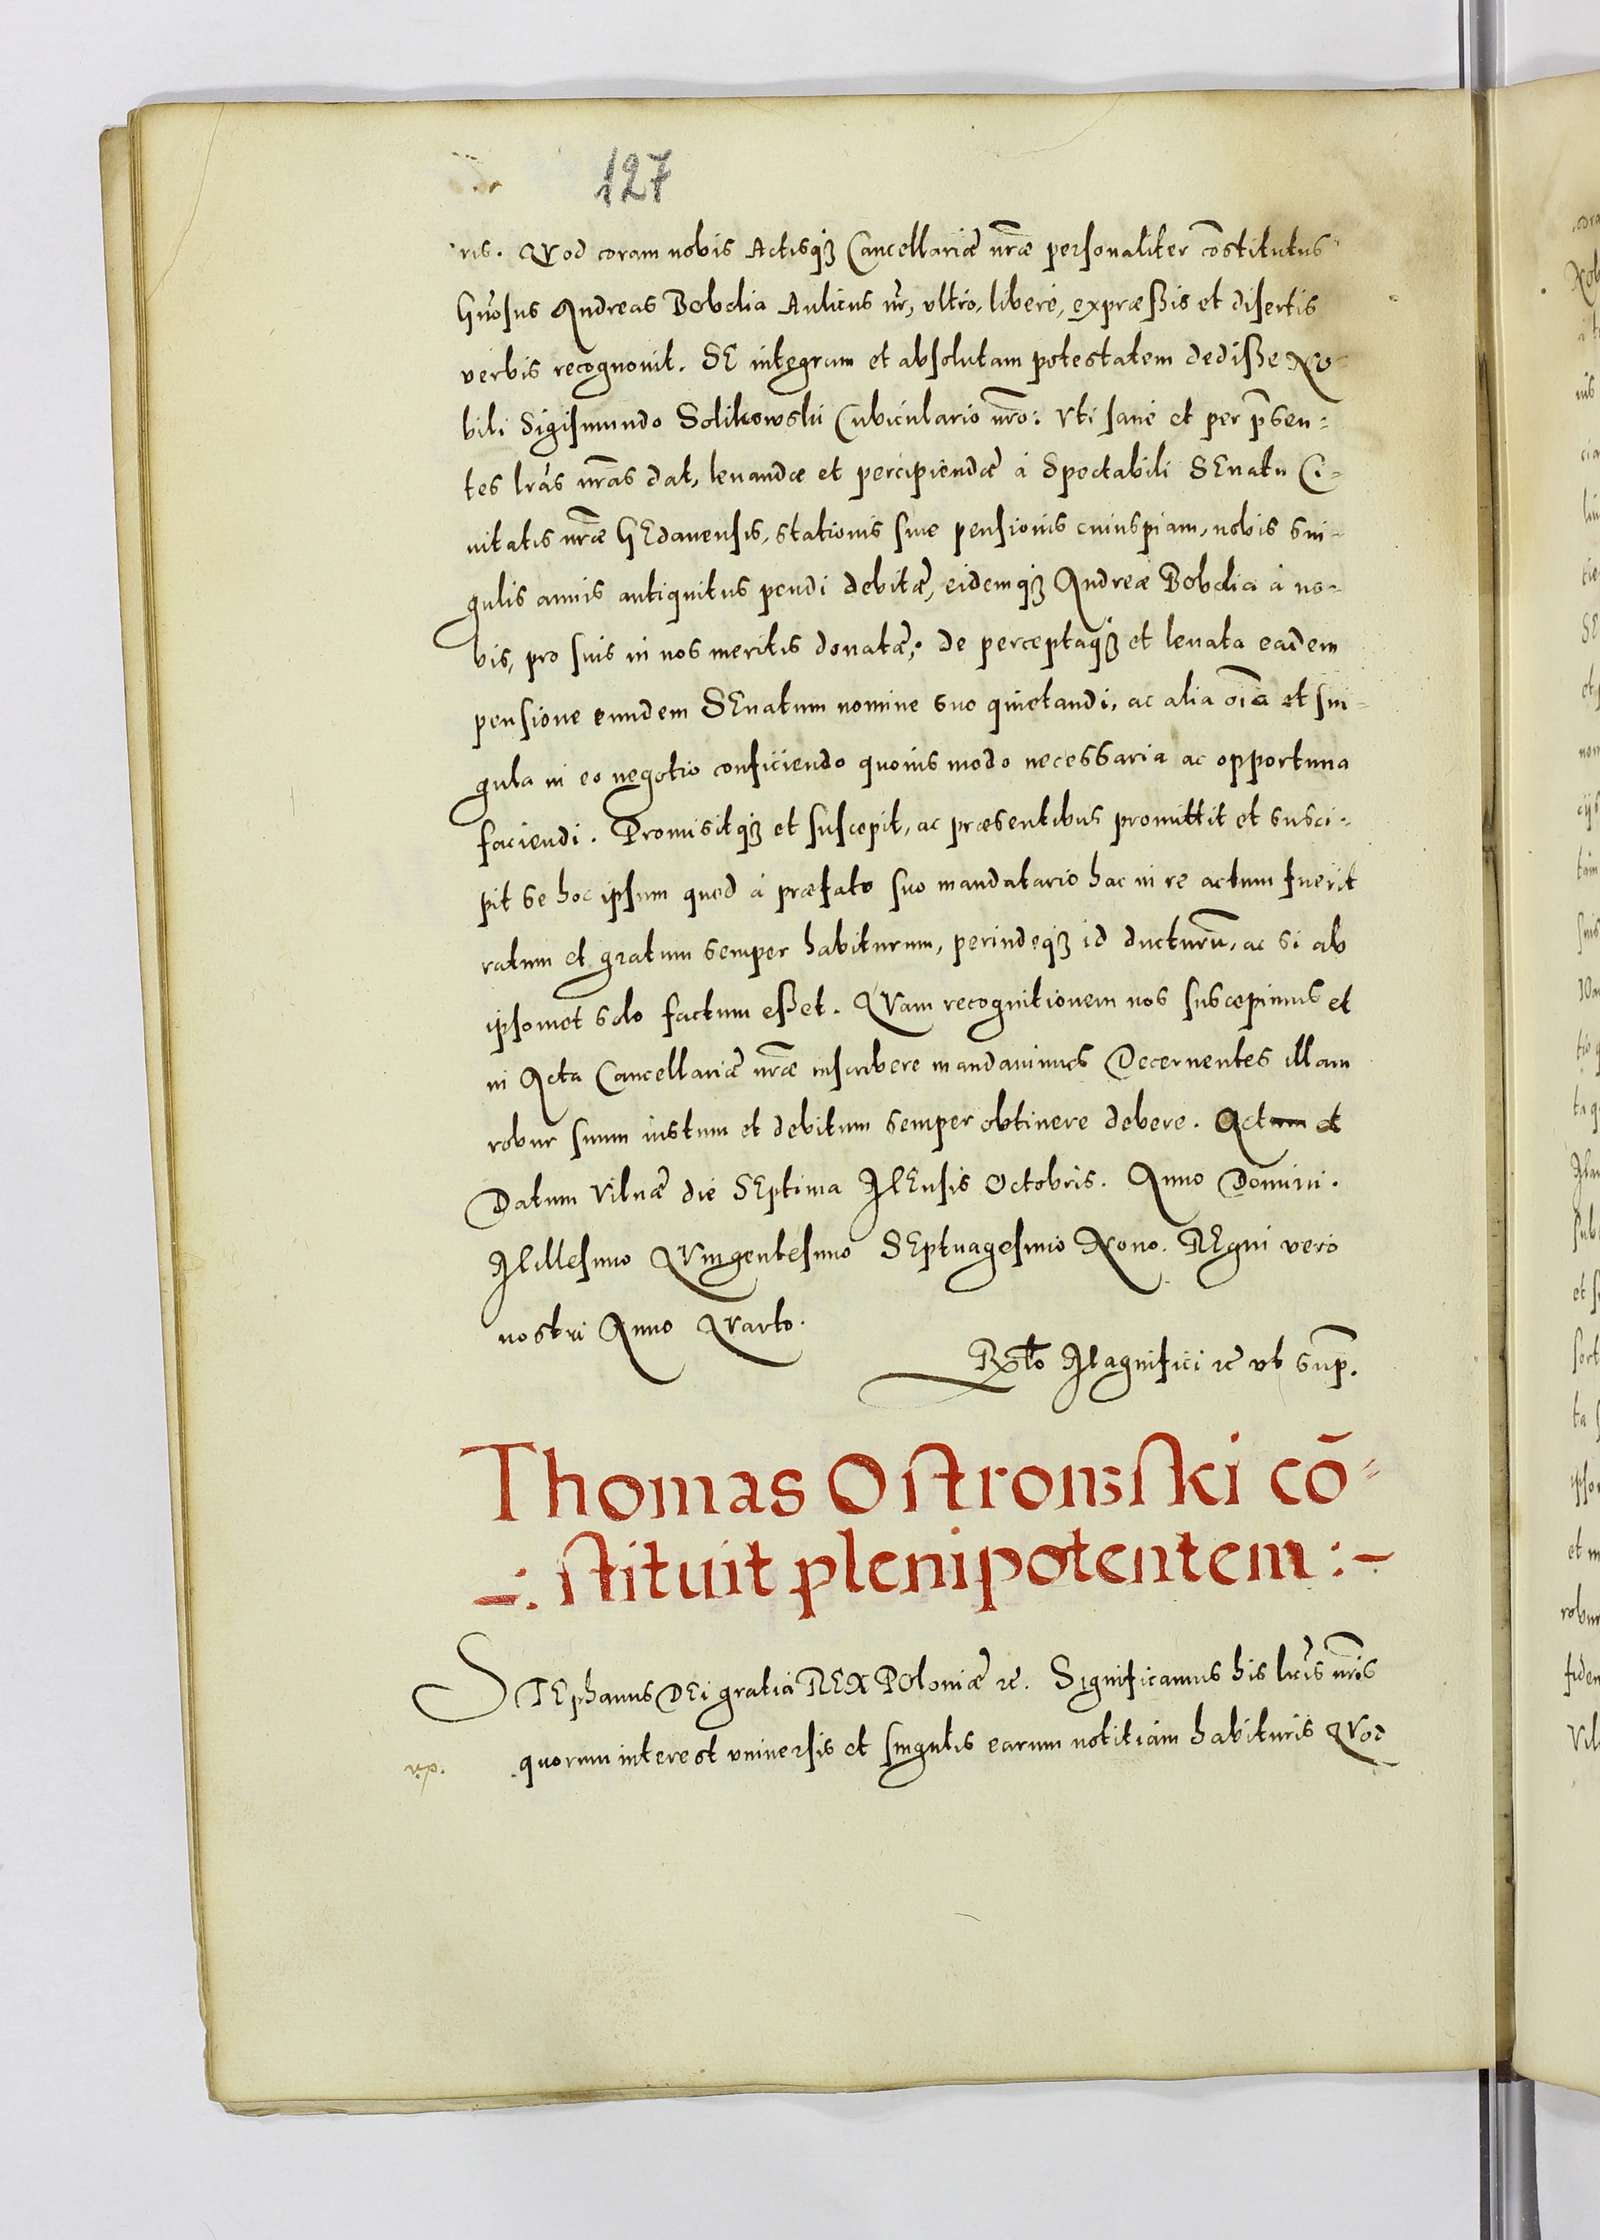 127
ris. Quod coram nobis Actisq; Cancellariæ nr̃æ personaliter cõstitutus
Gn̄osus Andreas Bobolia Aulicus nr̃, vltro, liberè, expræssis et disertis
verbis recognouit. SE integram et absolutam potestatem dedisse No-
bili Sigismundo Solikowski Cubiculario nr̃o: Vti sanè et per p̃sen:
tes lr̃as nr̃as dat, leuandæ et percipiendæ à Spectabili SEnatu Ci-
uitatis nr̃æ GEdanensis, stationis siue pensionis cuiuspiam, nobis sin-
gulis annis antiquitus pendi debitæ, eidemq; Andreæ Bobolia à no-
bis, pro suis in nos meritis donatæ; de perceptaq; et leuata eadem
pensione eundem SEnatum nomine suo quietandi, ac alia oĩa et sin-
gula in eo negotio conficiendo quouis modo necessaria ac opportuna
faciendi. Promisitq; et suscepit, ac præsentibus promittit et susci-
pit se hoc ipsum quod à præfato suo mandatario hac in re actum fuerit
ratum et gratum semper habiturum, perindeq; id ducturũ, ac si ab
ipsomet solo factum esset. Quam recognitionem nos suscepimus et
in Acta Cancellariæ nr̃æ inscribere mandauimus Decernentes illam
robur suum iustum et debitum semper obtinere debere. Actum et
Datum Vilnæ die SEptima MEnsis Octobris. Anno Domini.
Millesimo Quingentesimo SEptuagesimo Nono. REgni vero
nostri Anno Quarto.
Rlto Magnifici etc vt sup̃.
Thomas Ostrowski cõ-
-:stituit plenipotentem:-
STEphanus DEi gratia REX POloniæ etc. Significamus his lr̃is nr̃is
quorum interest vniuersis et singulis earum notitiam habituris Quod